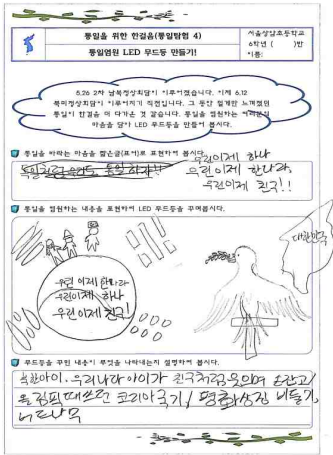 통일을 위한 한걸음(통일탐험 4)
통일염원 LED 무드등 만들기!
서울상담초등학교
6학년 ( )반
이름:
5.26 2차 남북정상회담이 이루어졌습니다. 이제 6.12
북미정상회담이 이루어지기 직전입니다. 그 동안 멀게만 느껴졌던
통일이 한걸음 더 다가온 것 같습니다. 통일을 염원하는 여러분의
마음을 담아 LED 무드등을 만들어 봅시다.
통일을 바라는 마음을 짧은글(표어)로 표현하여 봅시다.
우린이제 하나
우린이제 한나라
우린이제 친구!!
통일을 염원하는 내용을 표현하여 LED 무드등을 꾸며봅시다.
우린이제 한나라
우린이제 하나
우린이제 친구!
대한민국
무드등을 꾸민 내용이 무엇을 나타내는지 설명하여 봅시다.
북한아이, 우리나라 아이가 친구처럼 웃으며
올림픽때쓰던 코리아국기, 평화상징 비둘기,